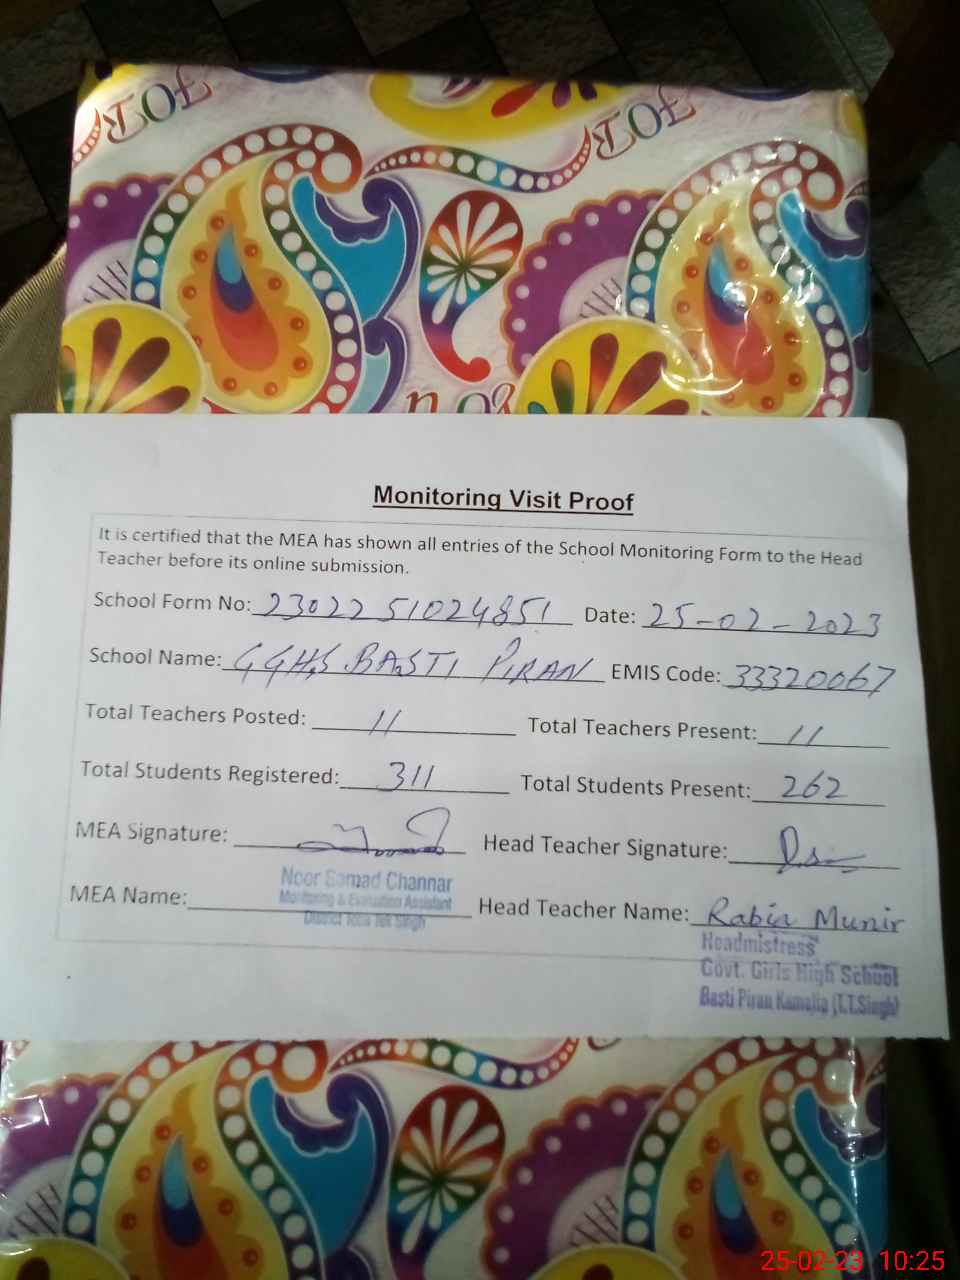 FOR
FOR
n or
Monitoring Visit Proof
It is certified that the MEA has shown all entries of the School Monitoring Form to the Head
Teacher before its online submission.
School Form No: 2302251024851 Date: 25-02-2023
School Name: GGHS BASTI PIRAN EMIS Code: 33320067
Total Teachers Posted: 11 Total Teachers Present: 11
Total Students Registered: 311 Total Students Present: 262
MEA Signature: Head Teacher Signature:
Noor Samad Channar
Monitoring & Evaluation Assistant
District Toba Tek Singh
MEA Name: Head Teacher Name: Rabia Munir
Headmistress
Govt. Girls High School
Basti Piran Kamalia (T.T.Singh)
25-02-23 10:25